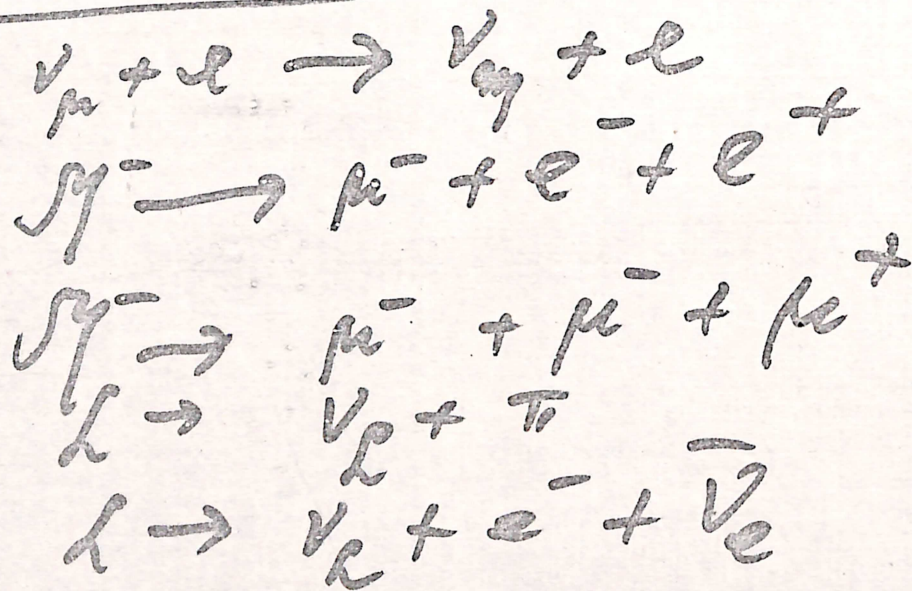 ν_μ + e → ν + e
→ μ⁻ + e⁻ + e⁺
→ μ⁻ + μ⁻ + μ⁺
L → ν_L + π
L → ν_L + e⁻ + ν̄_e